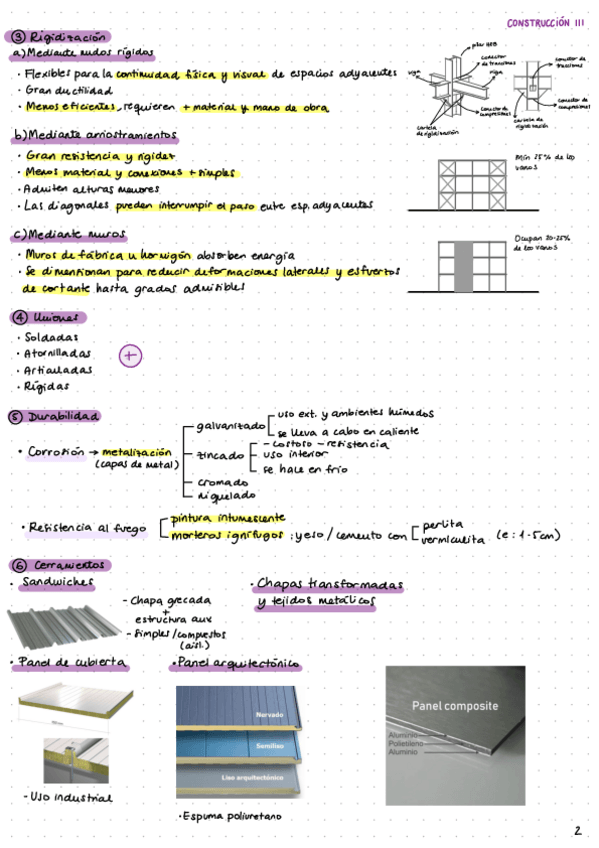 CONSTRUCCIÓN III
③ Rigidización
a) Mediante nudos rígidos
· Flexibles para la continuidad física y visual de espacios adyacentes
· Gran ductilidad
· Menos eficientes, requieren + material y mano de obra
pilar HEB
conector de tracciones
viga
viga
conector de compresiones
cartela de rigidización
conector de tracciones
conector de compresiones
cartela de rigidización
b) Mediante arriostramientos
· Gran resistencia y rigidez
· Menos material y conexiones + simples
· Admiten alturas menores
· Las diagonales pueden interrumpir el paso entre esp. adyacentes
Mín 25% de los
vanos
c) Mediante muros
· Muros de fábrica u hormigón absorben energía
· Se dimensionan para reducir deformaciones laterales y esfuerzos
de cortante hasta grados admisibles
Ocupan 20-25%
de los vanos
④ Uniones
· Soldadas
· Atornilladas
· Articuladas
· Rígidas
+
⑤ Durabilidad
· Corrosión → metalización
(capas de metal)
galvanizado
uso ext. y ambientes húmedos
se lleva a cabo en caliente
zincado
- costoso - resistencia
uso interior
se hace en frío
cromado
niquelado
· Resistencia al fuego
pintura intumescente
morteros ignífugos : yeso / cemento con
perlita
vermiculita
(e: 1-5cm)
⑥ Cerramientos
· Sandwiches
- Chapa grecada
+
estructura aux
- Simples/compuestos
(aisl.)
· Chapas transformadas
y tejidos metálicos
· Panel de cubierta
- Uso industrial
· Panel arquitectónico
Nervado
Semiliso
Liso arquitectónico
· Espuma poliuretano
Panel composite
Aluminio
Polietileno
Aluminio
2